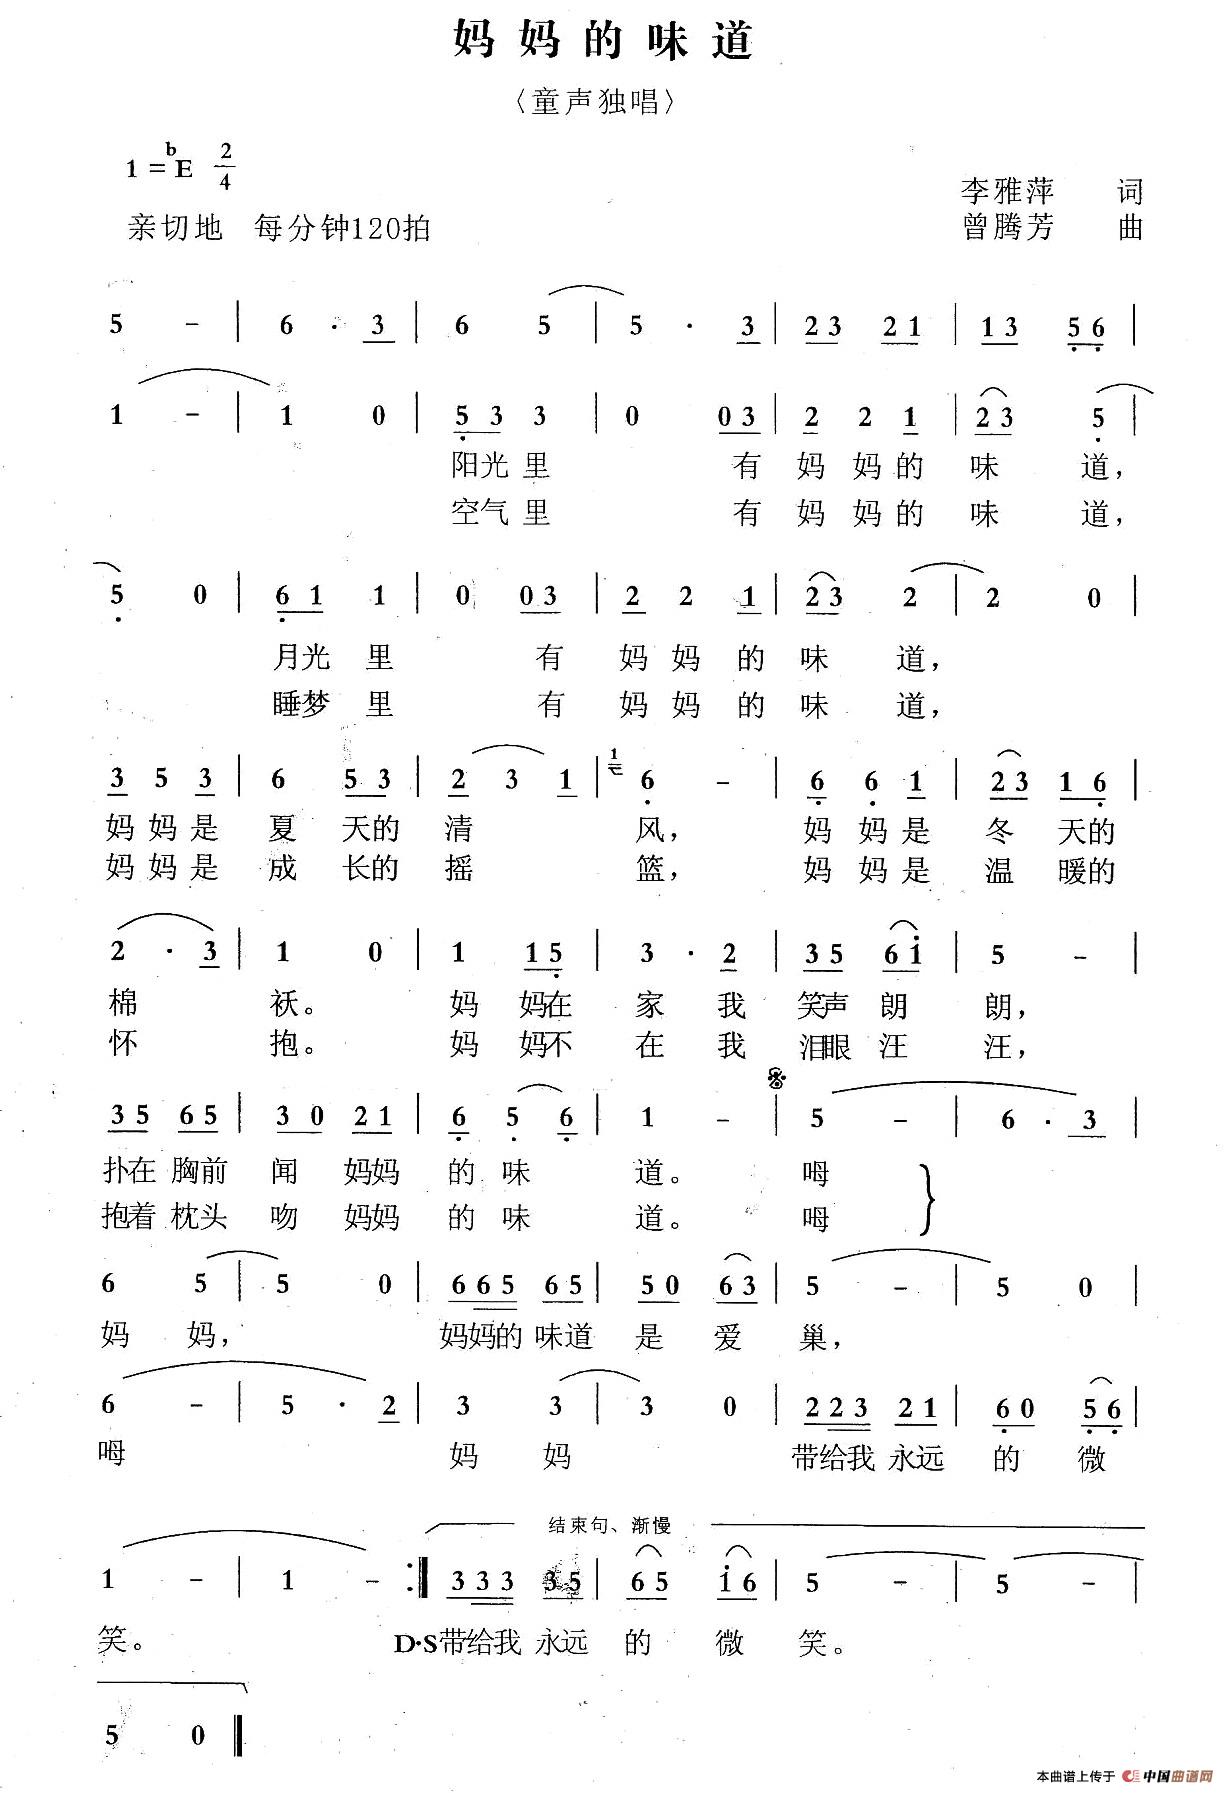 妈妈的味道
〈童声独唱〉
1=bE 2/4
李雅萍 词
亲切地 每分钟120拍
曾腾芳 曲
5 - | 6 · 3 | 6 5 | 5 · 3 | 23 21 | 13 56 |
1 - | 1 0 | 53 3 | 0 03 | 2 2 1 | 23 5 |
阳光里 有 妈 妈的 味 道，
空气里 有 妈 妈的 味 道，
5 0 | 61 1 | 0 03 | 2 2 1 | 23 2 | 2 0 |
月光 里 有 妈妈 的 味 道，
睡梦 里 有 妈妈 的 味 道，
3 5 3 | 6 53 | 2 3 1 | 1 6 - | 6 6 1 | 23 16 |
妈妈是 夏 天的 清 风， 妈 妈是 冬 天的
妈妈是 成 长的 摇 篮， 妈 妈是 温 暖的
2 · 3 | 1 0 | 1 15 | 3 · 2 | 35 61 | 5 - |
棉 袄。 妈 妈在 家 我 笑声 朗 朗，
怀 抱。 妈 妈不 在 我 泪眼 汪 汪，
35 65 | 30 21 | 6 5 6 | 1 - | 5 - | 6 · 3 |
扑在 胸前 闻 妈妈 的 味 道。 呣
抱着 枕头 吻 妈妈 的 味 道。 呣
6 5 | 5 0 | 665 65 | 50 63 | 5 - | 5 0 |
妈 妈， 妈妈的 味道 是 爱 巢，
6 - | 5 · 2 | 3 3 | 3 0 | 223 21 | 60 56 |
呣 妈 妈 带给我 永远 的 微
结束句、渐慢
1 - | 1 - :‖ 333 35 | 65 16 | 5 - | 5 - |
笑。 D·S带给我 永远 的 微 笑。
5 0 ‖
本曲谱上传于 中国曲谱网